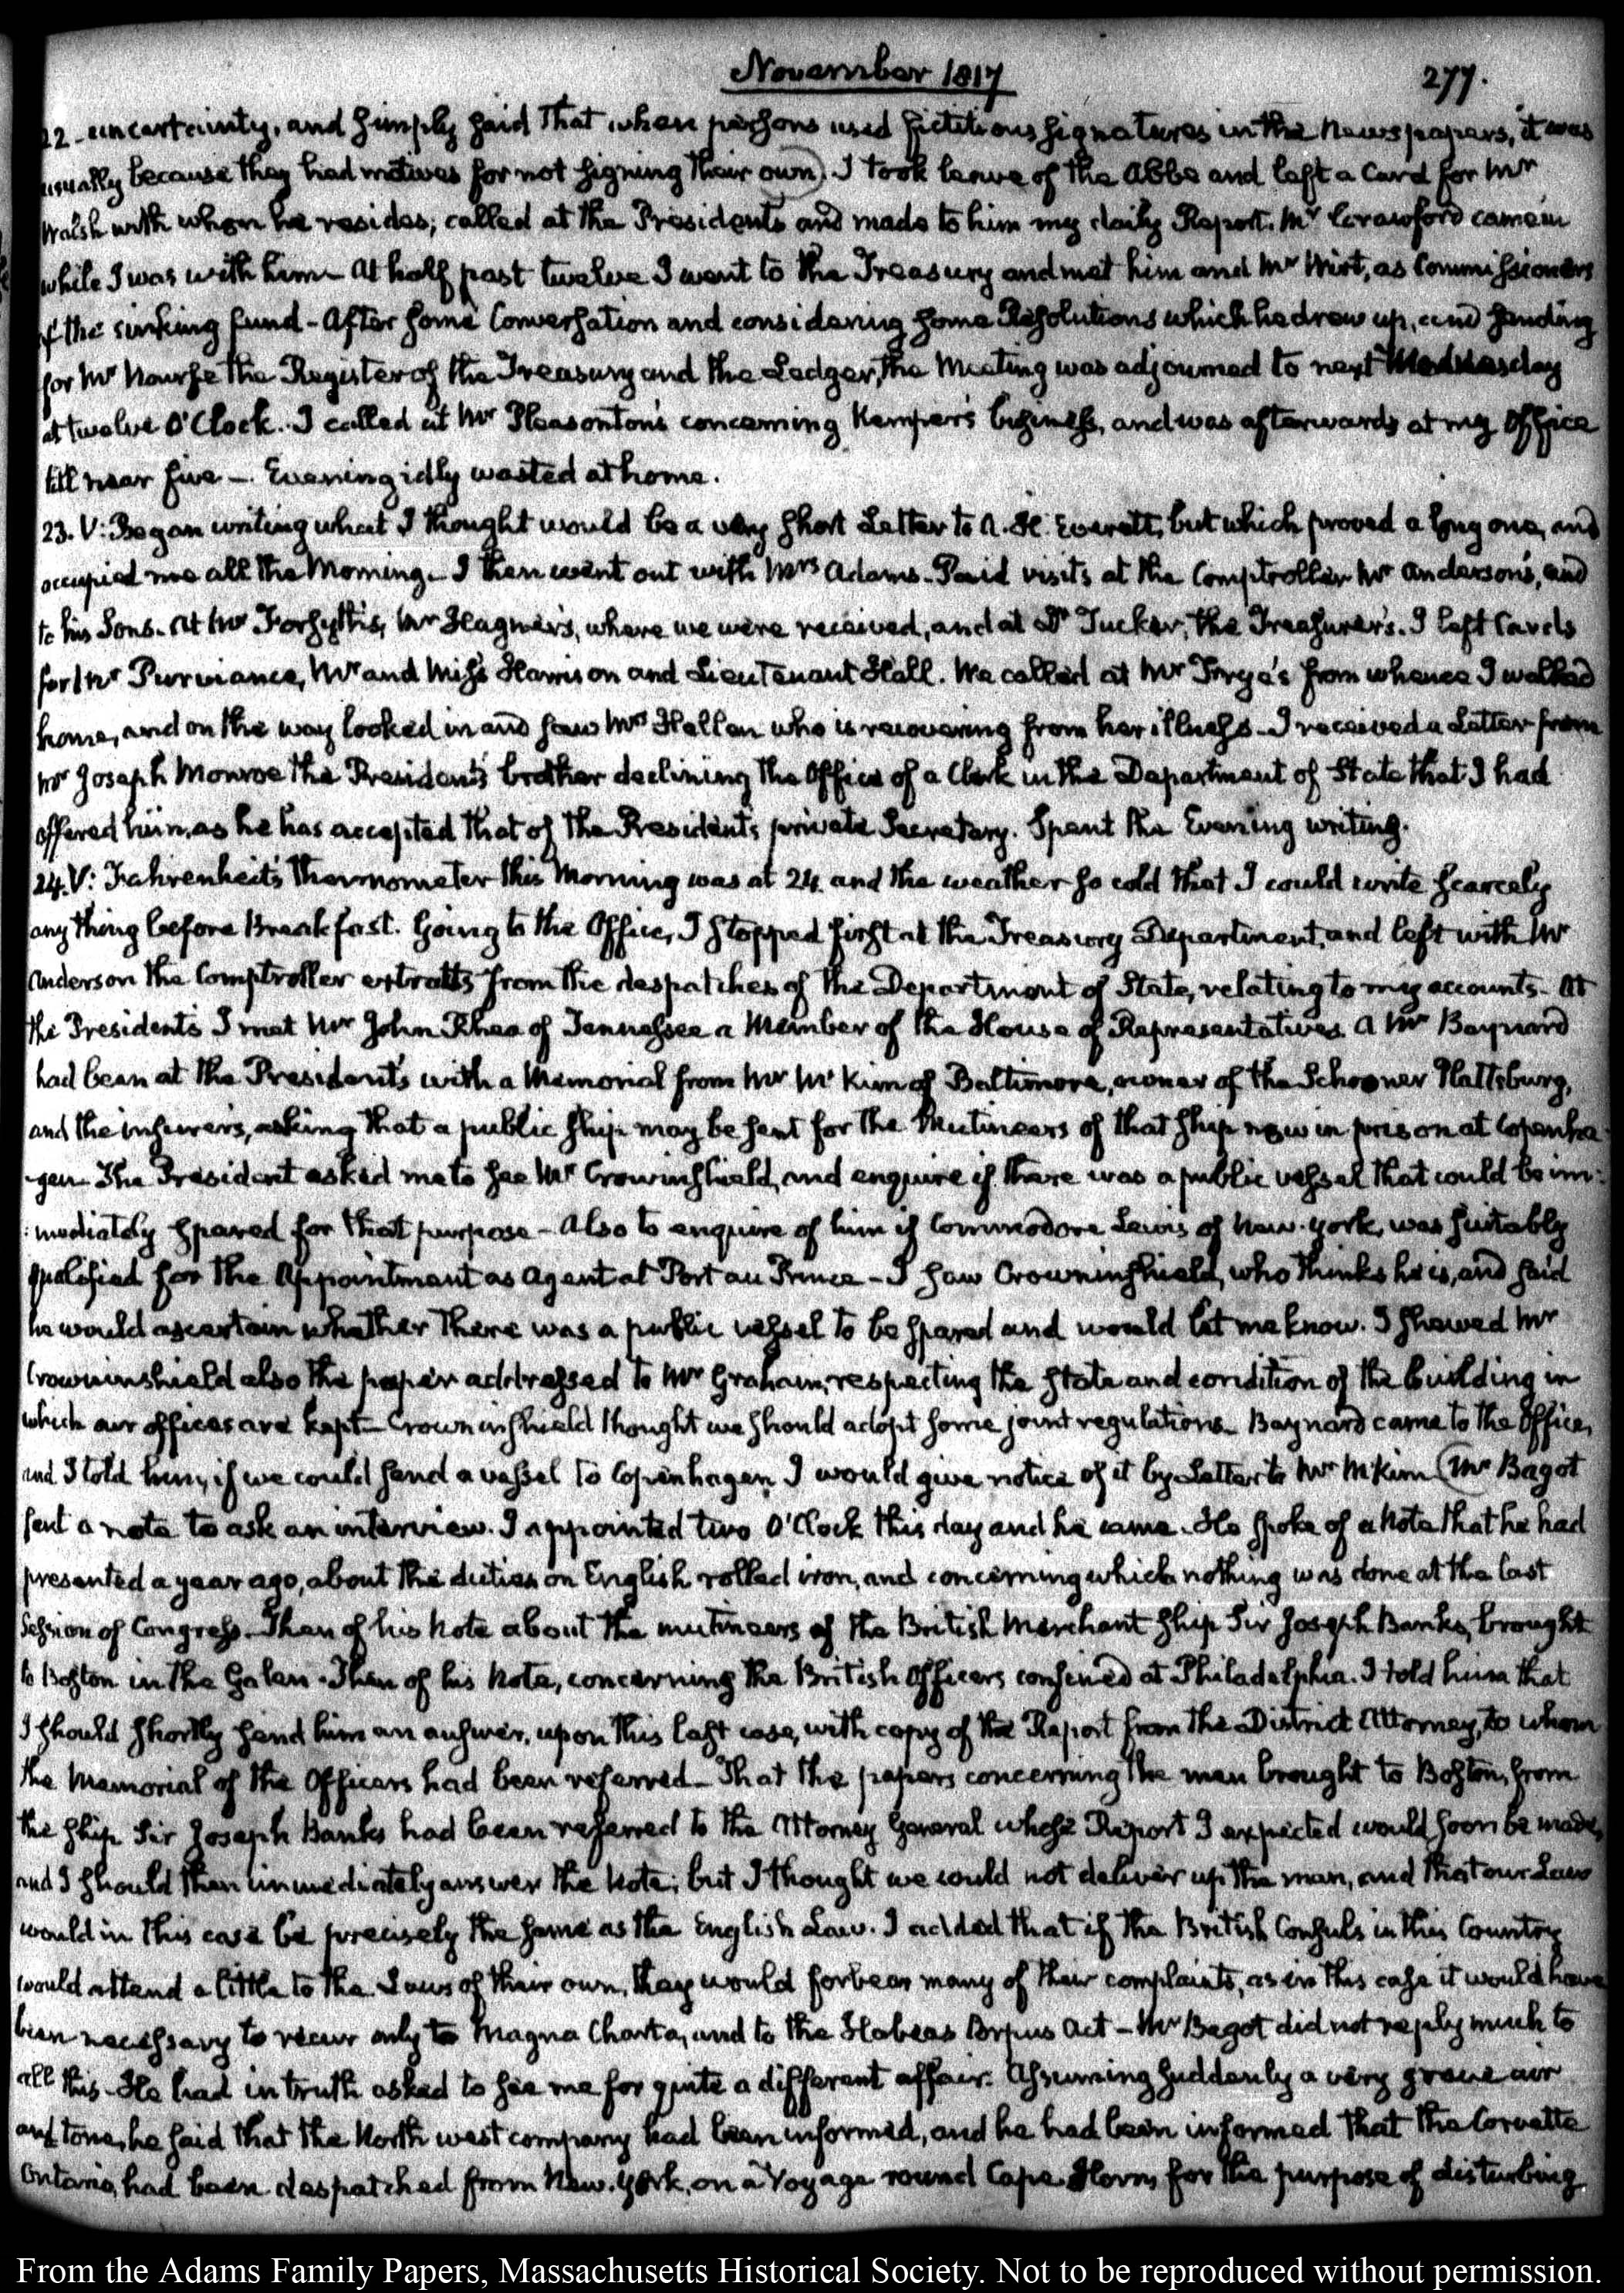 November 1817
277.
22 - uncertainty, and simply said that when persons used fictitious signatures in the Newspapers, it was
usually because they had motives for not signing their own). I took leave of the Abbe and left a Card for Mr
Walsh with whom he resides; called at the Presidents and made to him my daily Report. Mr Crawford came in
while I was with him - At half past twelve I went to the Treasury and met him and Mr Wirt, as Commissioners
of the sinking fund - After some Conversation and considering some Resolutions which he drew up, and sending
for Mr Nourse the Register of the Treasury and the Ledger, the Meeting was adjourned to next Wednesday
at twelve O'Clock. I called at Mr Pleasonton's concerning Kemper's business, and was afterwards at my Office
till near five -. Evening idly wasted at home.
23. V: Began writing what I thought would be a very short Letter to A. H. Everett, but which proved a long one, and
occupied me all the Morning - I then went out with Mrs Adams - Paid visits at the Comptroller Mr Anderson's, and
to his Sons - At Mr Forsyth's, Mr Hagner's, where we were received, and at Dr Tucker, the Treasurer's. I left Cards
for Mr Purviance, Mr and Miss Harrison and Lieutenant Hall. We called at Mr Frye's from whence I walked
home, and on the way looked in and saw Mrs Hellen who is recovering from her illness - I received a Letter from
Mr Joseph Monroe the President's brother declining the Office of a Clerk in the Department of State that I had
offered him, as he has accepted that of the President's private Secretary. Spent the Evening writing.
24. V: Fahrenheit's Thermometer this Morning was at 24. and the weather so cold that I could write scarcely
any thing before Breakfast. Going to the Office, I stopped first at the Treasury Department, and left with Mr
Anderson the Comptroller extracts from the despatches of the Department of State, relating to my accounts - At
the Presidents I met Mr John Rhea of Tennessee a Member of the House of Representatives. A Mr Baynard
had been at the President's with a Memorial from Mr McKim of Baltimore, owner of the Schooner Plattsburg,
and the insurers, asking that a public ship may be sent for the Mutineers of that ship now in prison at Copenha
-gen - The President asked me to see Mr Crowninshield, and enquire if there was a public vessel that could be im:
:mediately spared for that purpose - Also to enquire of him if Commodore Lewis of New-York, was suitably
qualified for the Appointment as Agent at Port au Prince - I saw Crowninshield, who thinks he is, and said
he would ascertain whether there was a public vessel to be spared and would let me know. I shewed Mr
Crowninshield also the paper addressed to Mr Graham, respecting the state and condition of the building in
which our offices are kept - Crowninshield thought we should adopt some joint regulations - Baynard came to the Office,
and I told him, if we could send a vessel to Copenhagen I would give notice of it by Letter to Mr McKim (Mr Bagot
sent a note to ask an interview. I appointed two O'Clock this day and he came. He spoke of a Note that he had
presented a year ago, about the duties on English rolled iron, and concerning which nothing was done at the last
Session of Congress. Then of his Note about the mutineers of the British Merchant ship Sir Joseph Banks, brought
to Boston in the Galen - Then of his Note, concerning the British Officers confined at Philadelphia. I told him that
I should shortly send him an answer, upon this last case, with copy of the Report from the District Attorney, to whom
the Memorial of the Officers had been referred - That the papers concerning the man brought to Boston, from
the ship Sir Joseph Banks had been referred to the Attorney General whose Report I expected would soon be made,
and I should then immediately answer the Note; but I thought we could not deliver up the man, and that our Law
would in this case be precisely the same as the English Law. I added that if the British Consuls in this Country
would attend a little to the Laws of their own, they would forbear many of their complaints, as in this case it would have
been necessary to recur only to Magna Charta, and to the Habeas Corpus Act - Mr Bagot did not reply much to
all this - He had in truth asked to see me for quite a different affair. Assuming suddenly a very grave air
and tone, he said that the North west company had been informed, and he had been informed that the Corvette
Ontario, had been despatched from New-York, on a Voyage round Cape Horn, for the purpose of disturbing
From the Adams Family Papers, Massachusetts Historical Society. Not to be reproduced without permission.